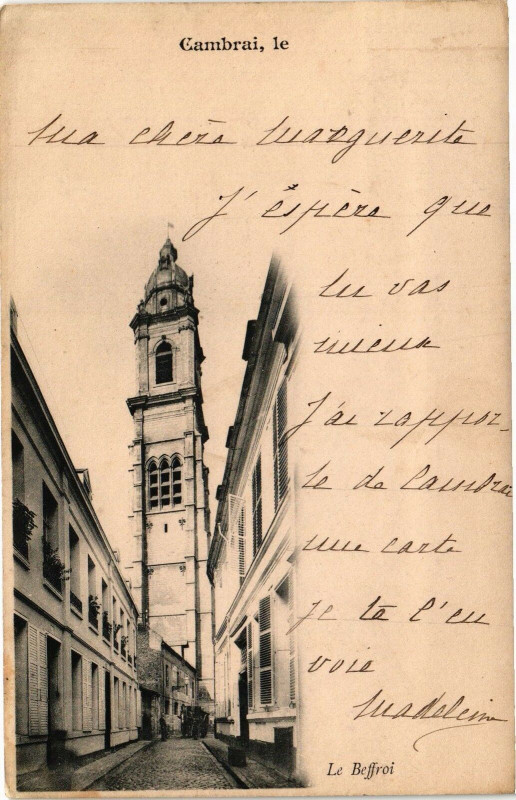 Cambrai, le
Ma chère Marguerite
J'éspère que
tu vas
mieux
J'ai rappor-
te de Cambrai
une carte
je te l'en
voie
Madeleine
Le Beffroi